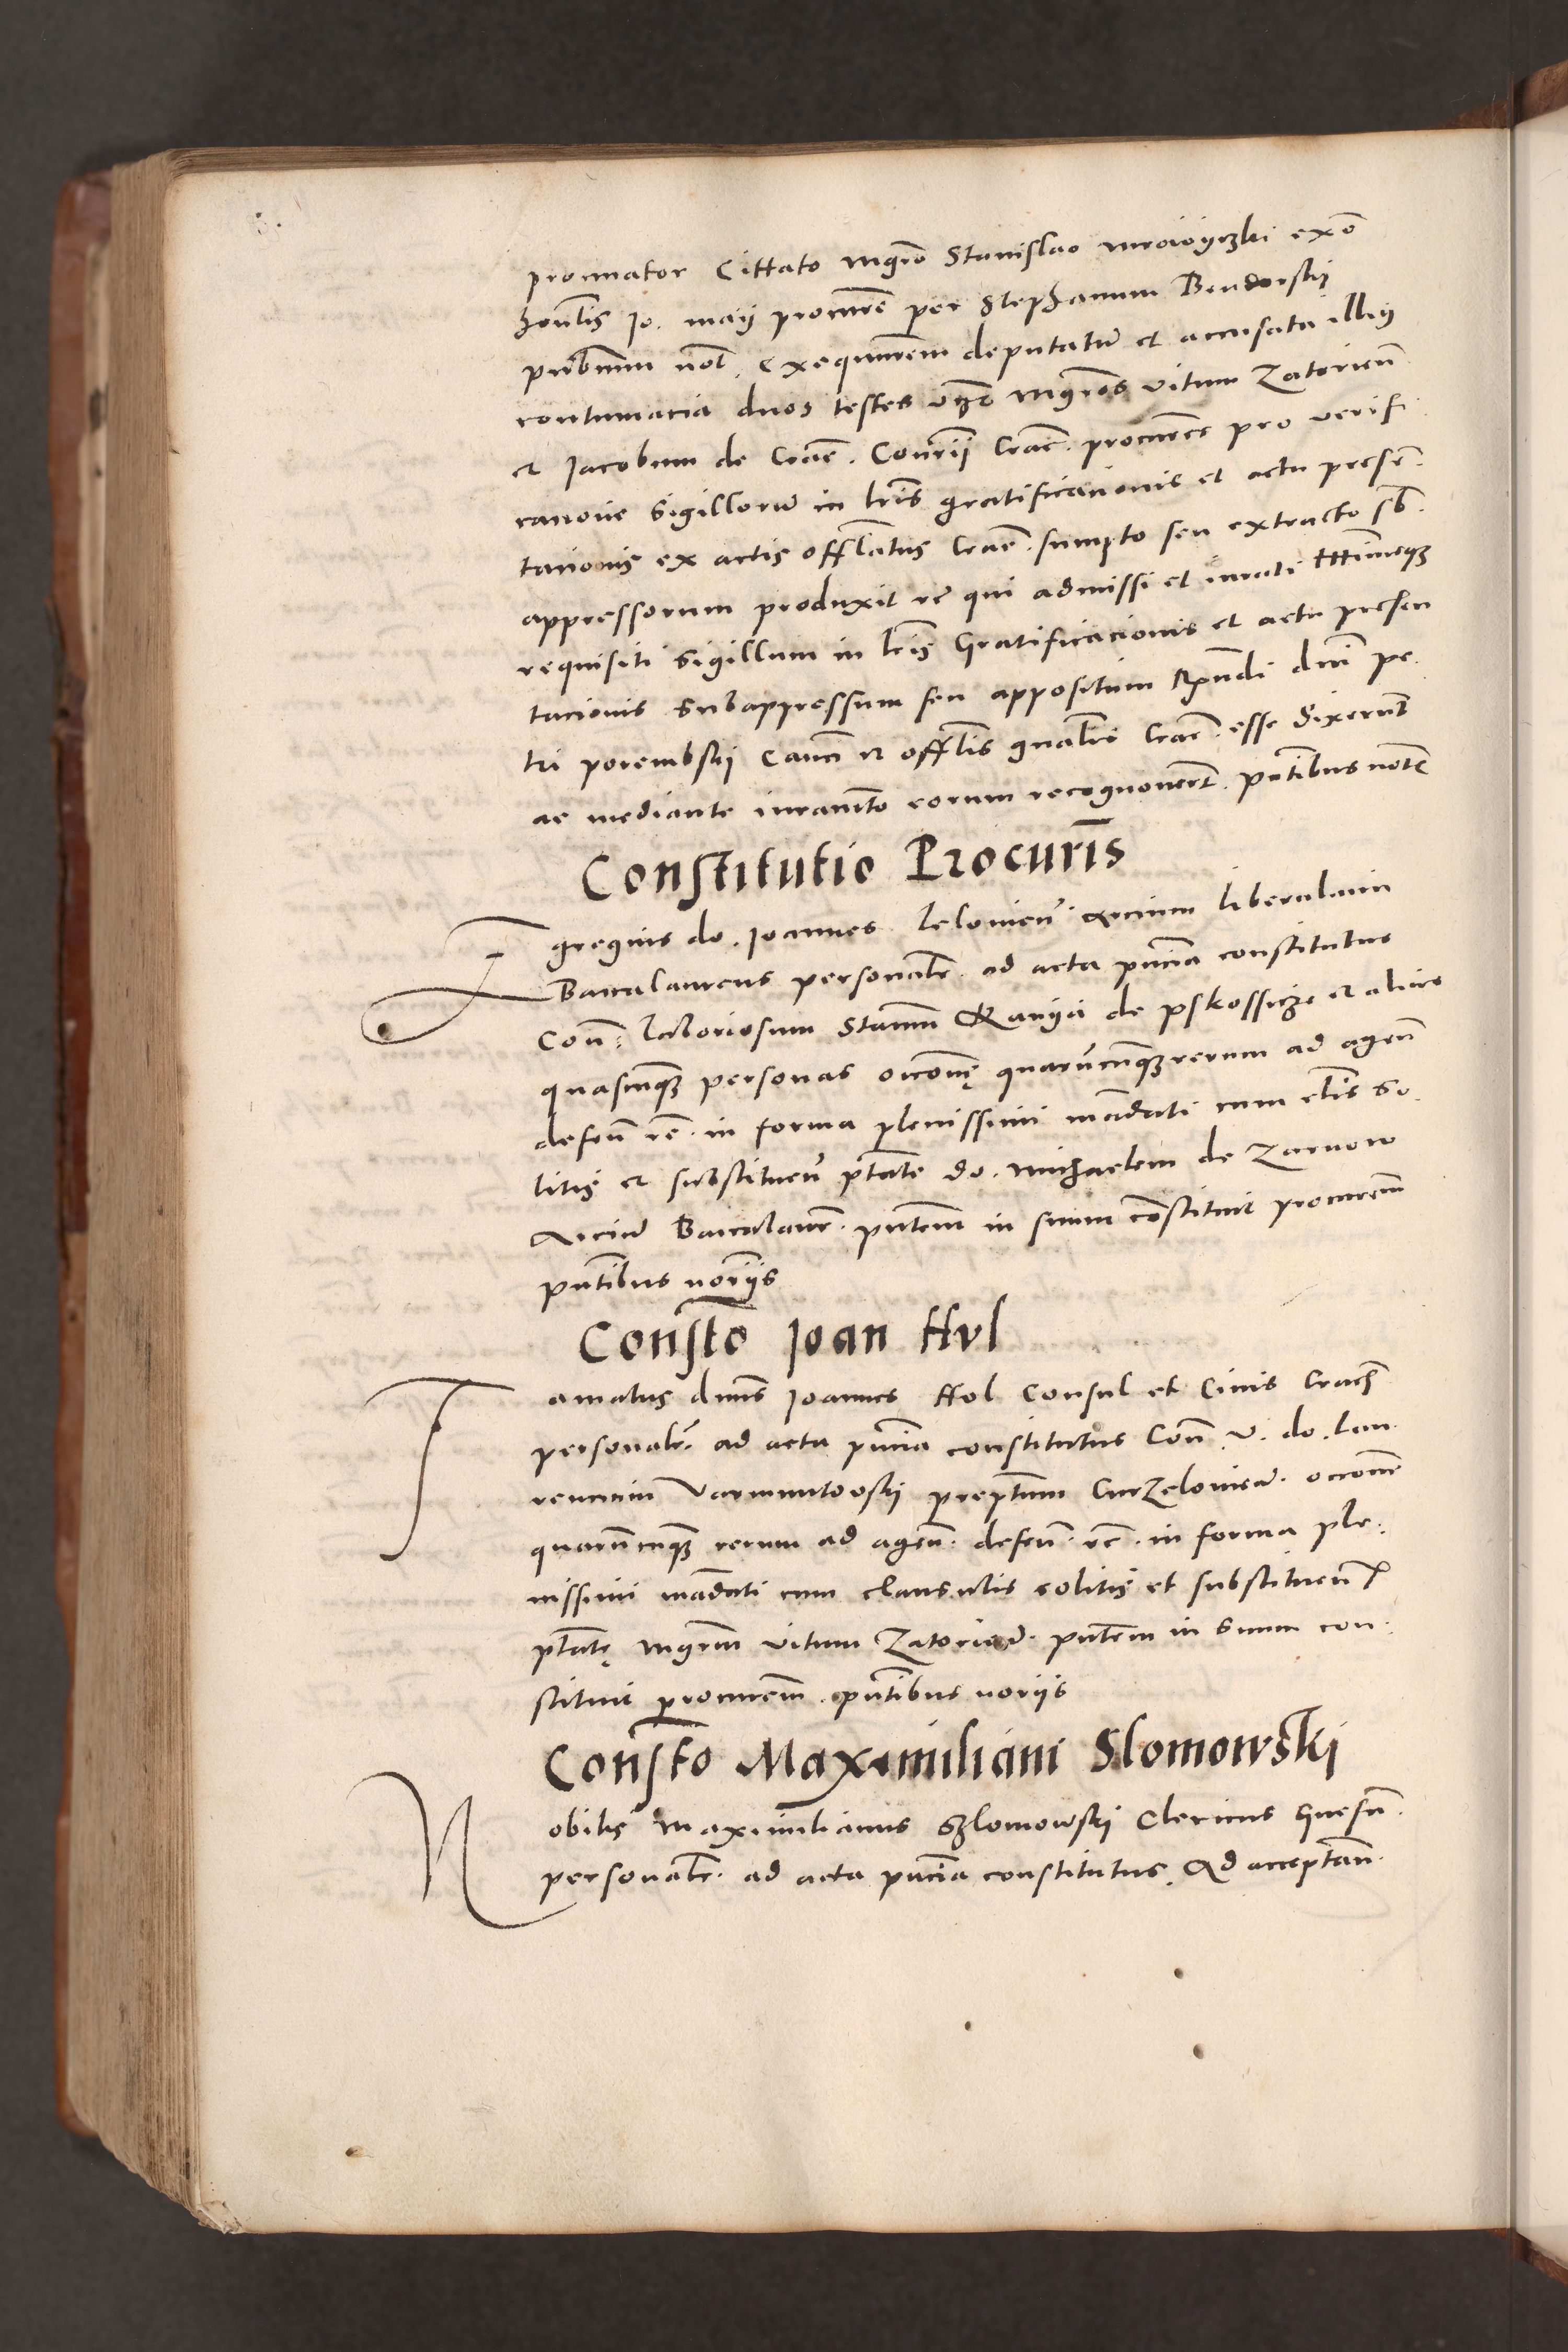 procurator Cittato Mgrō Stanislao mroioyczki ex ō
honlis Jo. maij procurē per Stephanum Bendorskij
pūbnum not. exequuttēm deputatū et accusata illig
contumacia duos testes vz Mgrōs Vitum Zatorien̄
et Jacobum de Crac̄. Consrij Crac̄. procures pro verifi
cacione sigillorū in lrīs gratificacionis et actu presen̄.
tacionis ex actis officlatus Crac̄. sumpto seu extracto sb.
appressorum produxit rc̄ qui admissi et iurati
requisiti sigillum in lrīs Gratificacionis et actu presen
tacionis subappressum seu appositum Rndi dnī pe.
tri porembskij Canc̄ et officlis gnalis Crac̄. esse dixerunt
ac mediante iuramto eorum recognouert. pn̄tibus notc
Constitutio Procuris
Egregius do. Joannes lelouien̄. Arcium liberalium
Baccalaureus personalr̄. ad acta pn̄cia constitutus
Con̄: laboriosum Stanm̄ Kanya de pskossicze et alios
quascunqz personas occonę quarūcunqz rerum ad agen̄
defen̄ rc̄. in forma plenissimi mādati cum clīs so.
litis et substituen̄ ptate do. Michaelem de Zarnow
Arciū Baccalaur̄. pn̄tem in suum constituit procurēm
pn̄tibus norijs
Consto Joan Hvl
Famatus dnus Joannes Hol Consul et Ciuis Crach̄
personalr̄. ad acta pn̄cia constitutus Con̄. V. do. lau.
rencium Varmuntowskij preptum Curzelouien̄. occone
quarūcunqz rerum ad agen̄. defen̄. rc̄. in forma ple:
nissimi mādati cum clausulis solitis et substituen̄
ptatę Mgrm Vitum Zatorien̄. pn̄tem in suum con.
stituit procurēm. pn̄tibus norijs
Consto Maximiliani Slomowski
Nobilis Maximilianus Szlomowskij Clericus Gnesn̄.
personalr̄. ad acta pn̄cia constitutus. Ad acceptan̄.